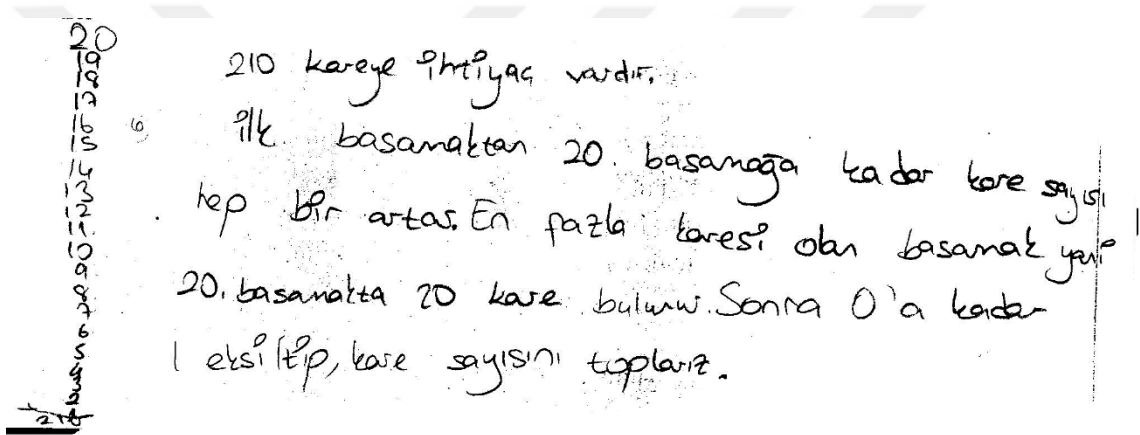 20
19
18
17
16
15
14
13
12
11
10
9
8
7
6
5
4
3
2
1
210
6
210 kareye ihtiyaç vardır.
ilk basamaktan 20. basamağa kadar kare sayısı
hep bir artar. En fazla karesi olan basamak yani
20. basamakta 20 kare bulunur. Sonra 0'a kadar
1 eksiltip, kare sayısını toplarız.